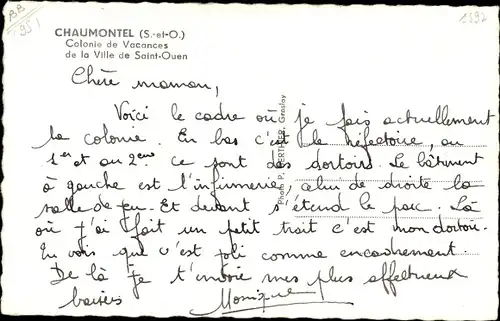 BB
951
1892
CHAUMONTEL (S.-et-O.)
Colonie de Vacances
de la Ville de Saint-Ouen
Photo P. BERTHIER, Groslay
Chère maman,
Voici le cadre où je fais actuellement
la colonie. En bas c'est le réfectoire, au
1er et au 2ème ce sont des dortoirs. Le bâtiment
à gauche est l'infirmerie, celui de droite la
salle de jeu. Et devant s'étend le parc. Là
où j'ai fait un petit trait c'est mon dortoir.
Tu vois que c'est joli comme encadrement.
De là je t'envoie mes plus affectueux
baisers Monique